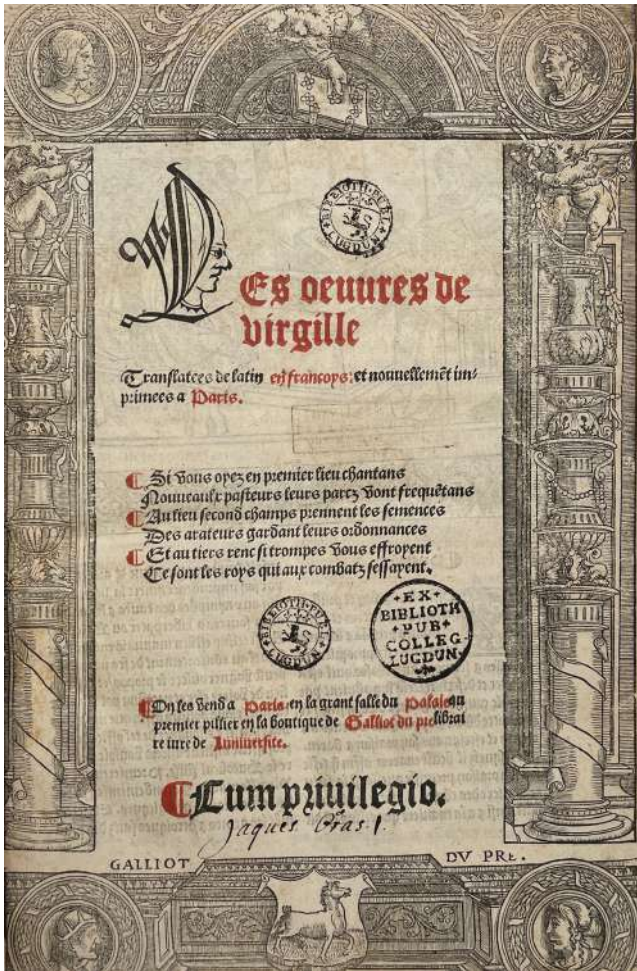 BIBLIOTH·PUBL LUGDUN
LEs oeuures de
virgille
Translatees de latin en francoys: et nouuellemēt im-
primees a Paris.
Si vous oyez en premier lieu chantans
Nouueaulx pasteurs leurs parcz vont frequētans
Au lieu second champs prennent les semences
Des arateurs gardant leurs ordonnances
Et au tiers renc si trompes vous effroyent
Ce sont les roys qui aux combatz sessayent.
BIBLIOTH·PUBL LUGDUN
EX
BIBLIOTH
PUB
COLLEG
LUGDUN.
On les vend a Paris en la grant salle du Palais au
premier pillier en la boutique de Galliot du pre librai
re iure de Luniuersite.
Cum priuilegio.
Jaques
GALLIOT DV PRE.